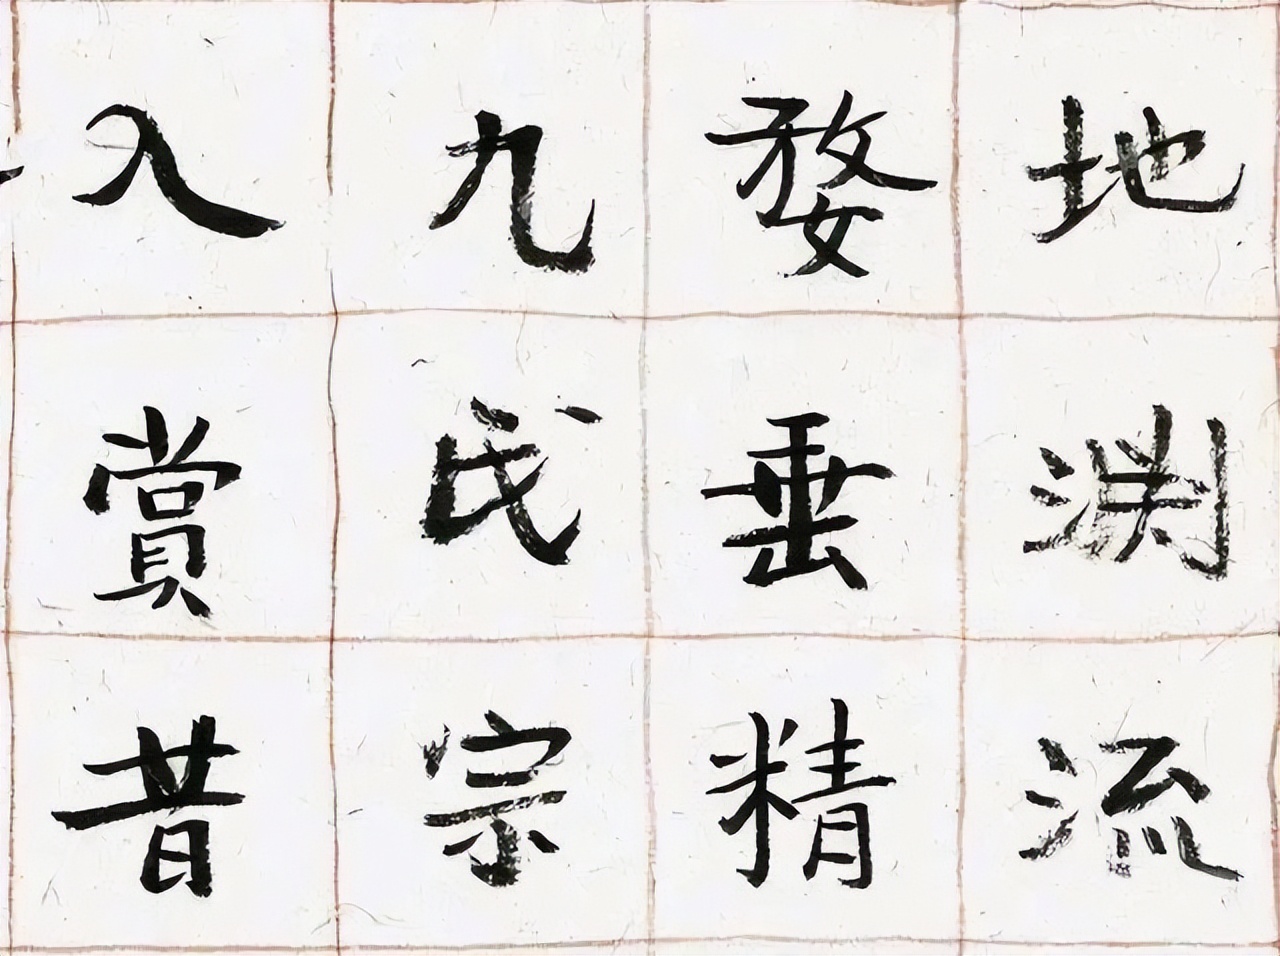 地渊流
婺垂精
九氏宗
入賞昔